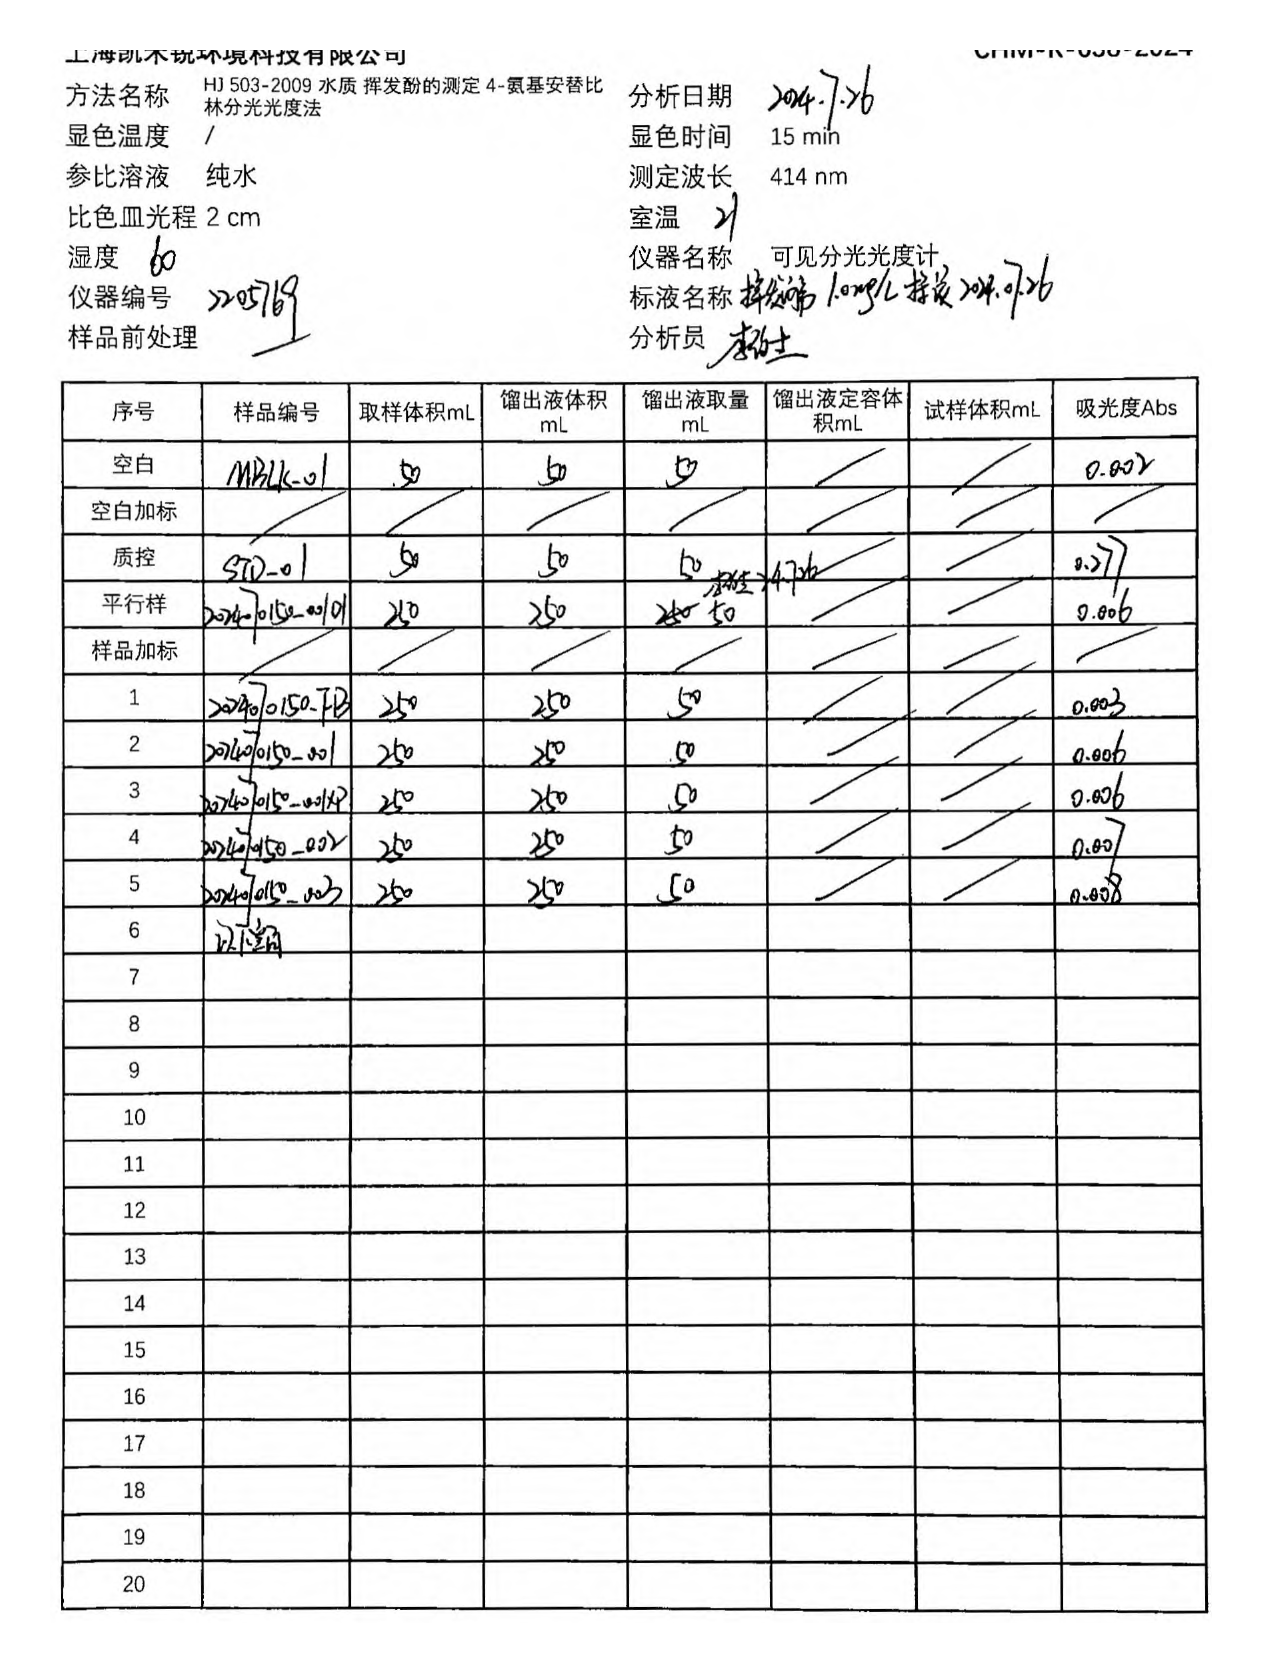 上海凯米锐环境科技有限公司 CHM-R-038-2024
方法名称 HJ 503-2009 水质 挥发酚的测定 4-氨基安替比林分光光度法 分析日期 2024.7.26
显色温度 / 显色时间 15 min
参比溶液 纯水 测定波长 414 nm
比色皿光程 2 cm 室温 21
湿度 60 仪器名称 可见分光光度计
仪器编号 2205769 标液名称 挥发酚 1.0mg/L 2024.07.26
样品前处理 / 分析员
序号 样品编号 取样体积mL 馏出液体积mL 馏出液取量mL 馏出液定容体积mL 试样体积mL 吸光度Abs
空白 MBLK-01 50 50 50 / / 0.002
空白加标 / / / / / / /
质控 STD-01 50 50 50 / / 0.277
平行样 2024070150-001D1 250 250 250 50 / / 0.006
样品加标 / / / / / / /
1 2024070150-FB 250 250 50 / / 0.003
2 2024070150-001 250 250 50 / / 0.006
3 2024070150-001XP 250 250 50 / / 0.006
4 2024070150-002 250 250 50 / / 0.007
5 2024070150-003 250 250 50 / / 0.008
6 以下空白
7
8
9
10
11
12
13
14
15
16
17
18
19
20